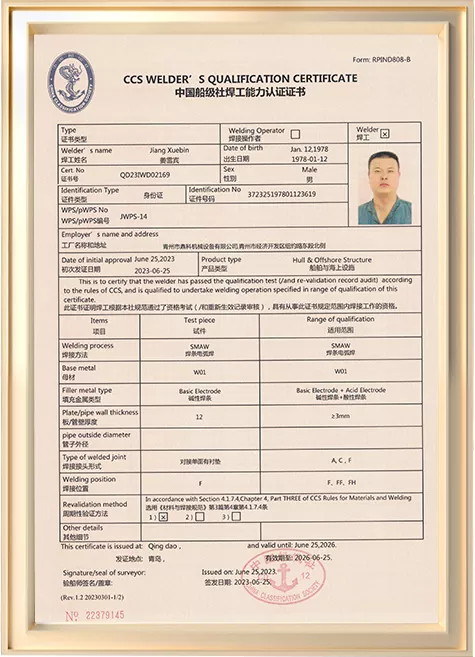 Form: RPIND808-B
CCS WELDER'S QUALIFICATION CERTIFICATE
中国船级社焊工能力认证证书
Type
证书类型
Welding Operator
焊接操作者
Welder
焊工
Welder's name
焊工姓名
Jiang Xuebin
姜雪宾
Date of birth
出生日期
Jan. 12,1978
1978-01-12
Cert. No
证书号
QD23IWD02169
Sex
性别
Male
男
Identification Type
证件类型
身份证
Identification No
证件号码
372325197801123619
WPS/pWPS No
WPS/pWPS编号
JWPS-14
Employer's name and address
工厂名称和地址
青州市鼎科机械设备有限公司,青州市经济开发区纽约路东段北侧
Date of initial approval
初次发证日期
June 25,2023
2023-06-25
Product type
产品类型
Hull & Offshore Structure
船舶与海上设施
This is to certify that the welder has passed the qualification test (/and re-validation record audit) according
to the rules of CCS, and is qualified to undertake welding operation specified in range of qualification of this
certificate.
此证书证明焊工根据本社规范通过了资格考试(/和重新生效记录审核),具有从事此证书规定范围内焊接工作的资格。
Items
项目
Test piece
试件
Range of qualification
适用范围
Welding process
焊接方法
SMAW
焊条电弧焊
SMAW
焊条电弧焊
Base metal
母材
W01
W01
Filler metal type
填充金属类型
Basic Electrode
碱性焊条
Basic Electrode + Acid Electrode
碱性焊条+酸性焊条
Plate/pipe wall thickness
板/管壁厚度
12
≥3mm
pipe outside diameter
管子外径
Type of welded joint
焊接接头形式
对接单面有衬垫
A, C, F
Welding position
焊接位置
F
F、FF、FH
Revalidation method
周期性验证方法
In accordance with Section 4.1.7.4,Chapter 4, Part THREE of CCS Rules for Materials and Welding
适用《材料与焊接规范》第3篇第4章第4.1.7.4条
1) 2) 3)
Other details
其他细节
This certificate is issued at: Qing dao, and valid until: June 25,2026.
发证地点: 青岛, 有效期至: 2026-06-25.
Signature/seal of surveyor:
验船师签名/盖章:
Issued on: June 25,2023.
签发日期: 2023-06-25.
(Rev.1.2 20230301-1/2)
№ 22379145
12
CHINA CLASSIFICATION SOCIETY